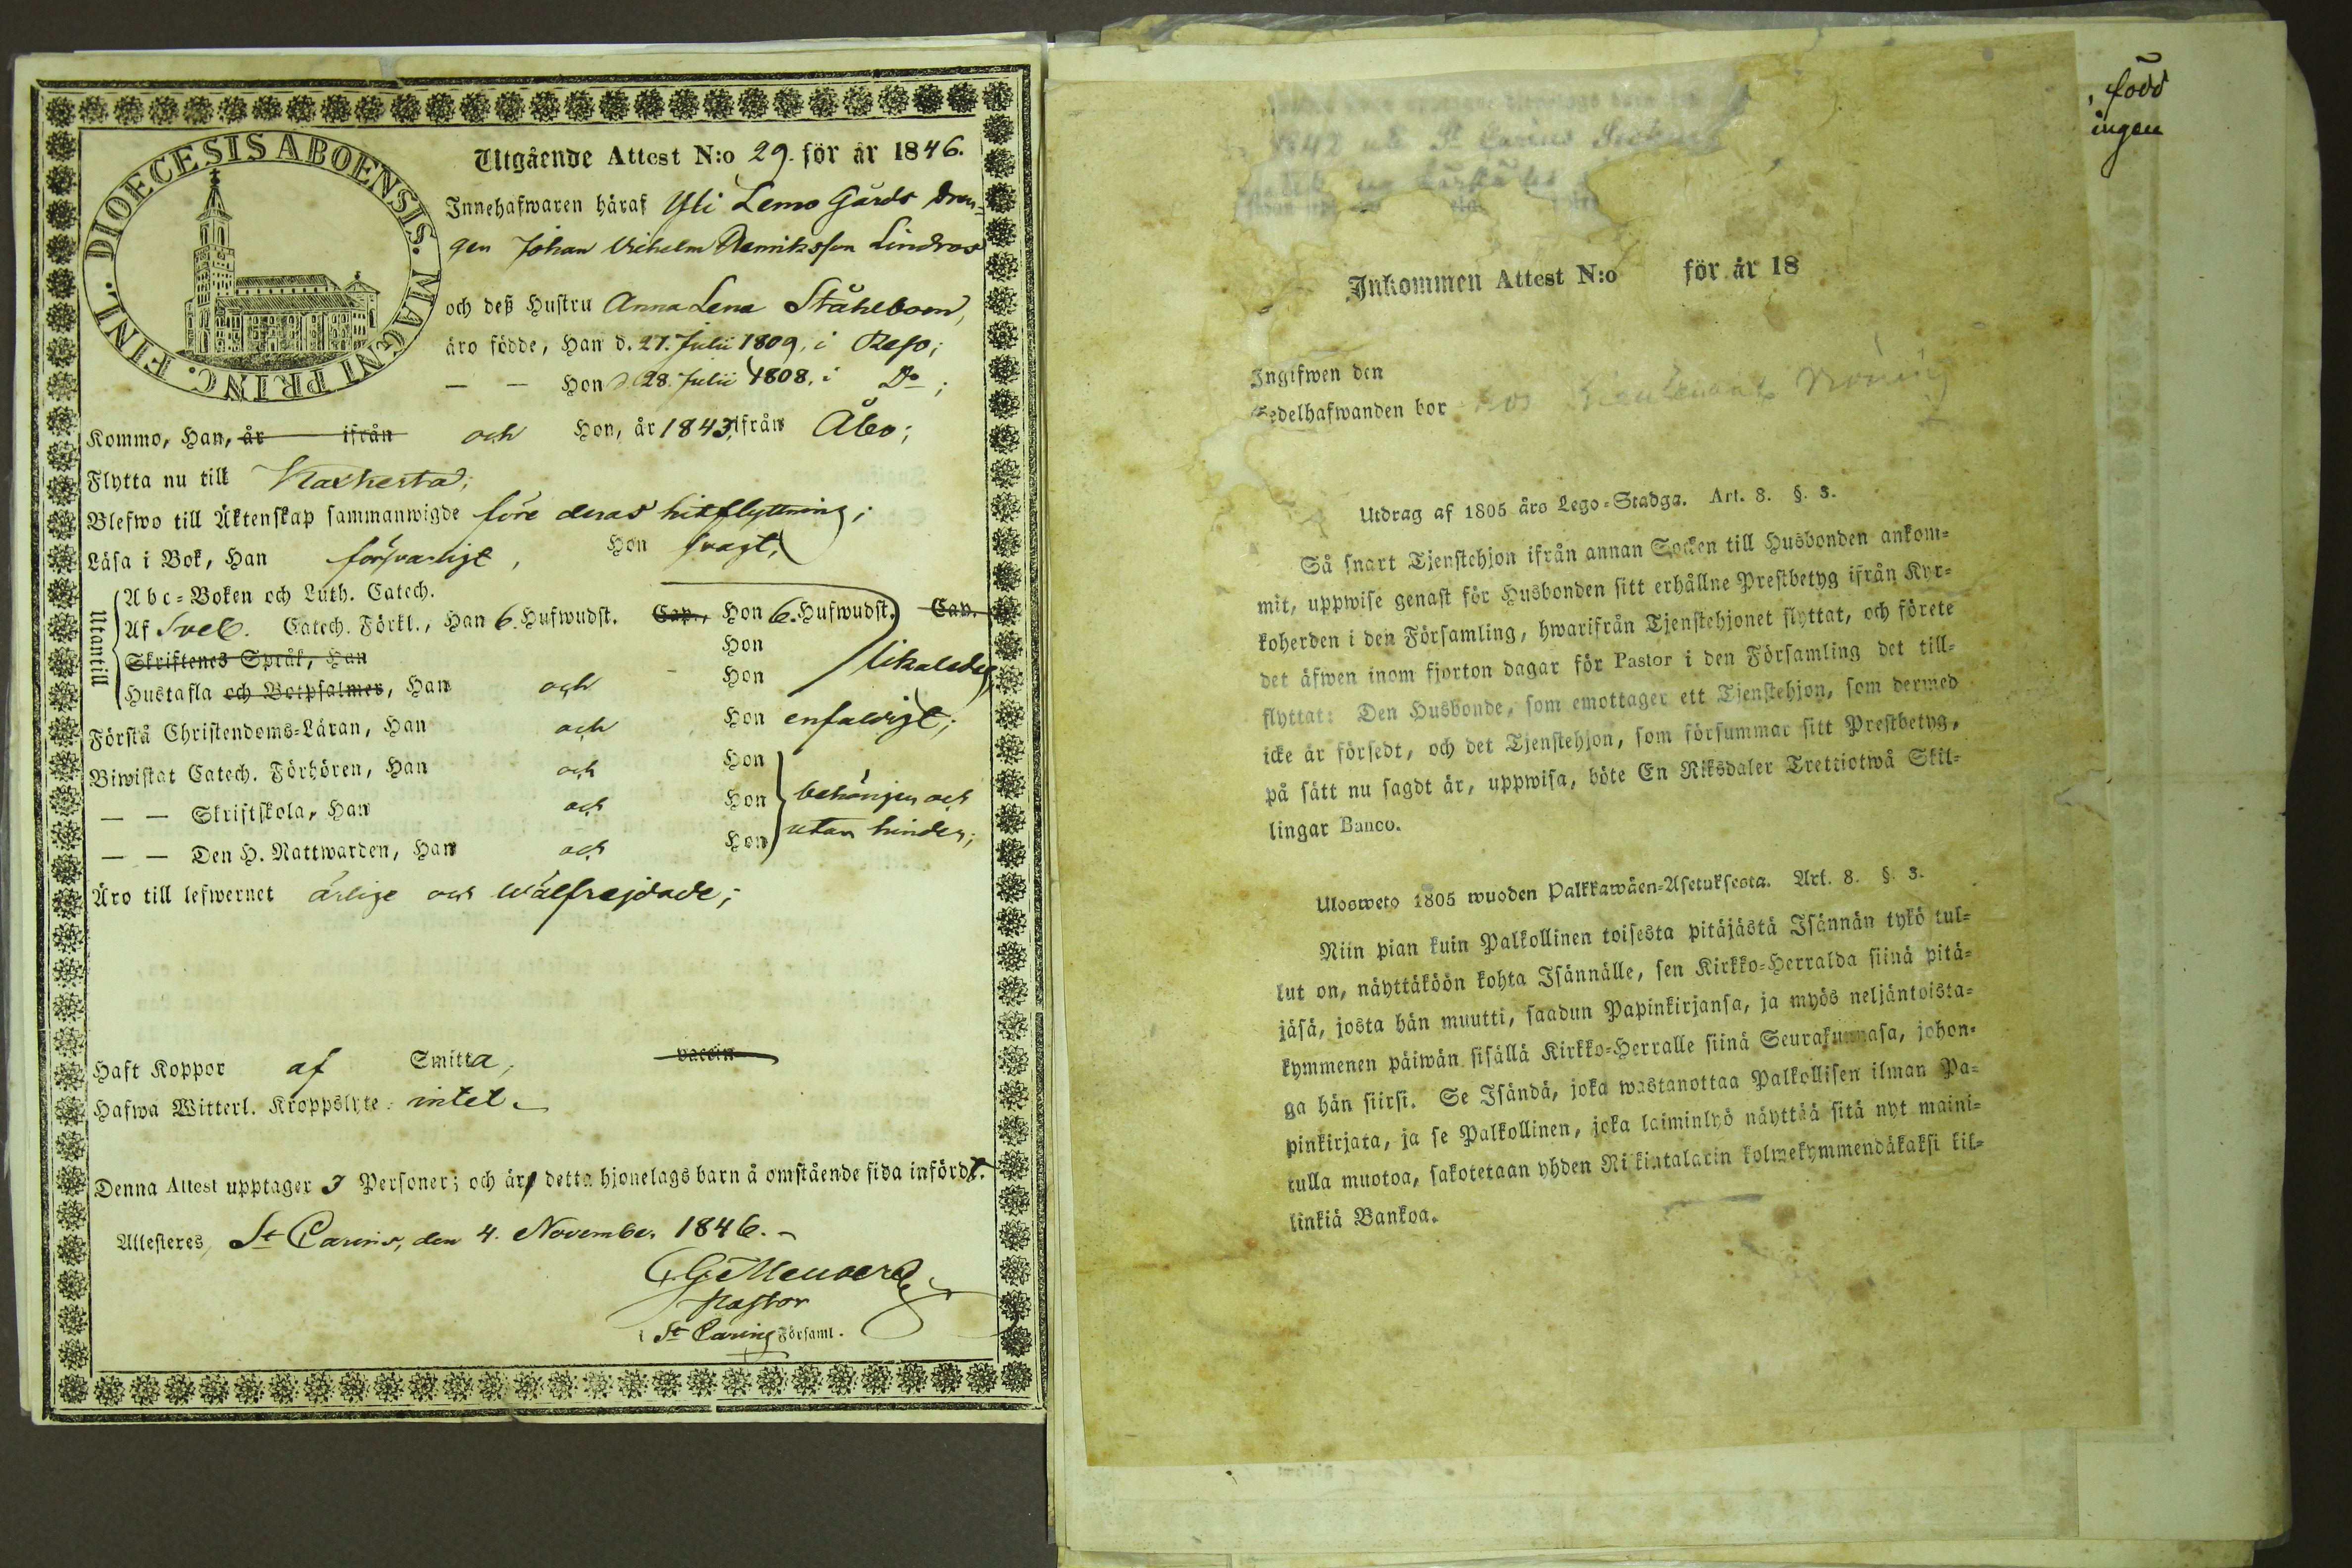 DIOECESIS ABOENSIS. MAGNI PRINC. FINL.
Utgående Attest N:o 29. för år 1846.
Innehafwaren häraf Yli Lemo Gårds Dren=
gen Johan Vilhelm Henriksson Lindros
och deß Hustru Anna Lena Ståhlbom,
äro födde, Han d. 27. Julii 1809, i Reso;
— — Hon d. 28. Julii 1808, i Do;
Kommo, Han, år ifrån och Hon, år 1843, ifrån Åbo;
Flytta nu till
Blefwo till Äktenskap sammanwigde före deras hitflyttning;
Läsa i Bok, Han försvarligt, Hon svagt,
Utantill
Abc=Boken och Luth. Catech.
Af Sveb. Catech. Förkl., Han 6. Hufwudst. Cap., Hon 6. Hufwudst. Cap.
Skriftenes Språk, Han Hon
Hustafla och Botpsalmer, Han och Hon likaledes
Förstå Christendoms=Läran, Han och Hon enfaldigt;
Biwistat Catech. Förhören, Han och Hon
— — Skriftskola, Han och Hon behörigen och
— — Den H. Nattwarden, Han och Hon utan hinder;
Äro till lefwernet ärlige och wälfrejdade;
Haft Koppor af Smitta, vaccin
Hafwa Witterl. Kroppslyte: intet.
Denna Attest upptager 3 Personer; och är detta hjonelags barn å omstående sida infördt.
Attesteres, St Carins, den 4. November 1846.
Pastor
i St Carins Församl.
1842 uti St Carins Sochn
Inkommen Attest N:o för år 18
Ingifwen den
Sedelhafwanden bor hos Lieutenant
Utdrag af 1805 års Lego=Stadga. Art. 8. §. 3.
Så snart Tjenstehjon ifrån annan Socken till Husbonden ankom=
mit, uppwise genast för Husbonden sitt erhållne Prestbetyg ifrån Kyr=
koherden i den Församling, hwarifrån Tjenstehjonet flyttat, och förete
det äfwen inom fjorton dagar för Pastor i den Församling det till=
flyttat: Den Husbonde, som emottager ett Tjenstehjon, som dermed
icke är försedt, och det Tjenstehjon, som försummar sitt Prestbetyg,
på sätt nu sagdt är, uppwisa, böte En Riksdaler Trettiotwå Skil=
lingar Banco.
Ulosweto 1805 wuoden Palkkawäen=Asetuksesta. Art. 8. §. 3.
Niin pian kuin Palkollinen toisesta pitäjästä Isännän tykö tul=
lut on, näyttäköön kohta Isännälle, sen Kirkko=Herralda siinä pitä=
jäsä, josta hän muutti, saadun Papinkirjansa, ja myös neljäntoista=
kymmenen päiwän sisällä Kirkko=Herralle siinä Seurakunnasa, johon=
ga hän siirsi. Se Isändä, joka wastanottaa Palkollisen ilman Pa=
pinkirjata, ja se Palkollinen, joka laiminlyö näyttää sitä nyt maini=
tulla muotoa, sakotetaan yhden Riikintalarin kolmekymmendäkaksi kil=
linkiä Bankoa.
, född
ingen